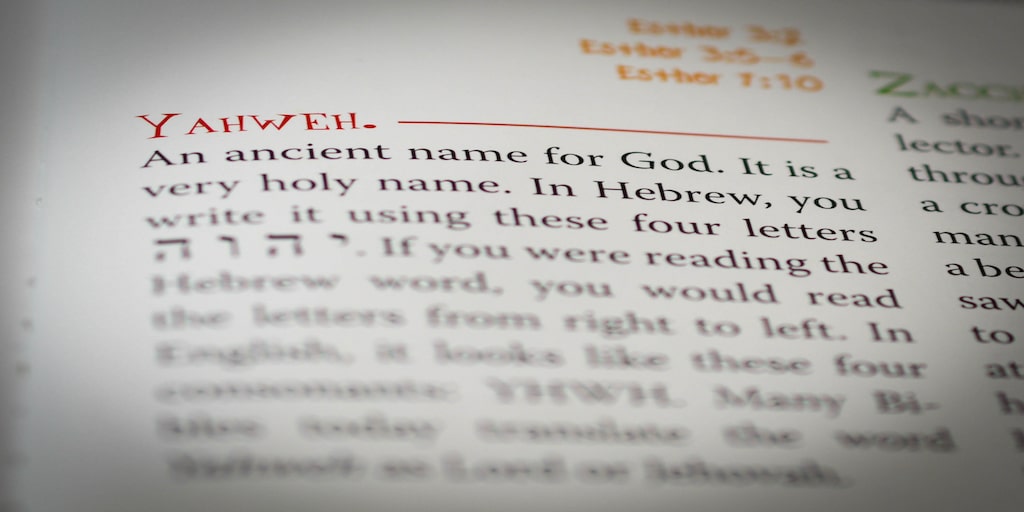 Esther 3:2
Esther 3:5–6
Esther 7:10
YAHWEH.
An ancient name for God. It is a
very holy name. In Hebrew, you
write it using these four letters
יהוה. If you were reading the
Hebrew word, you would read
the letters from right to left. In
English, it looks like these four
consonants: YHWH. Many Bi-
bles today translate the word
as Lord or Jehovah.
A short
lector.
a
man
a be
saw
to
at